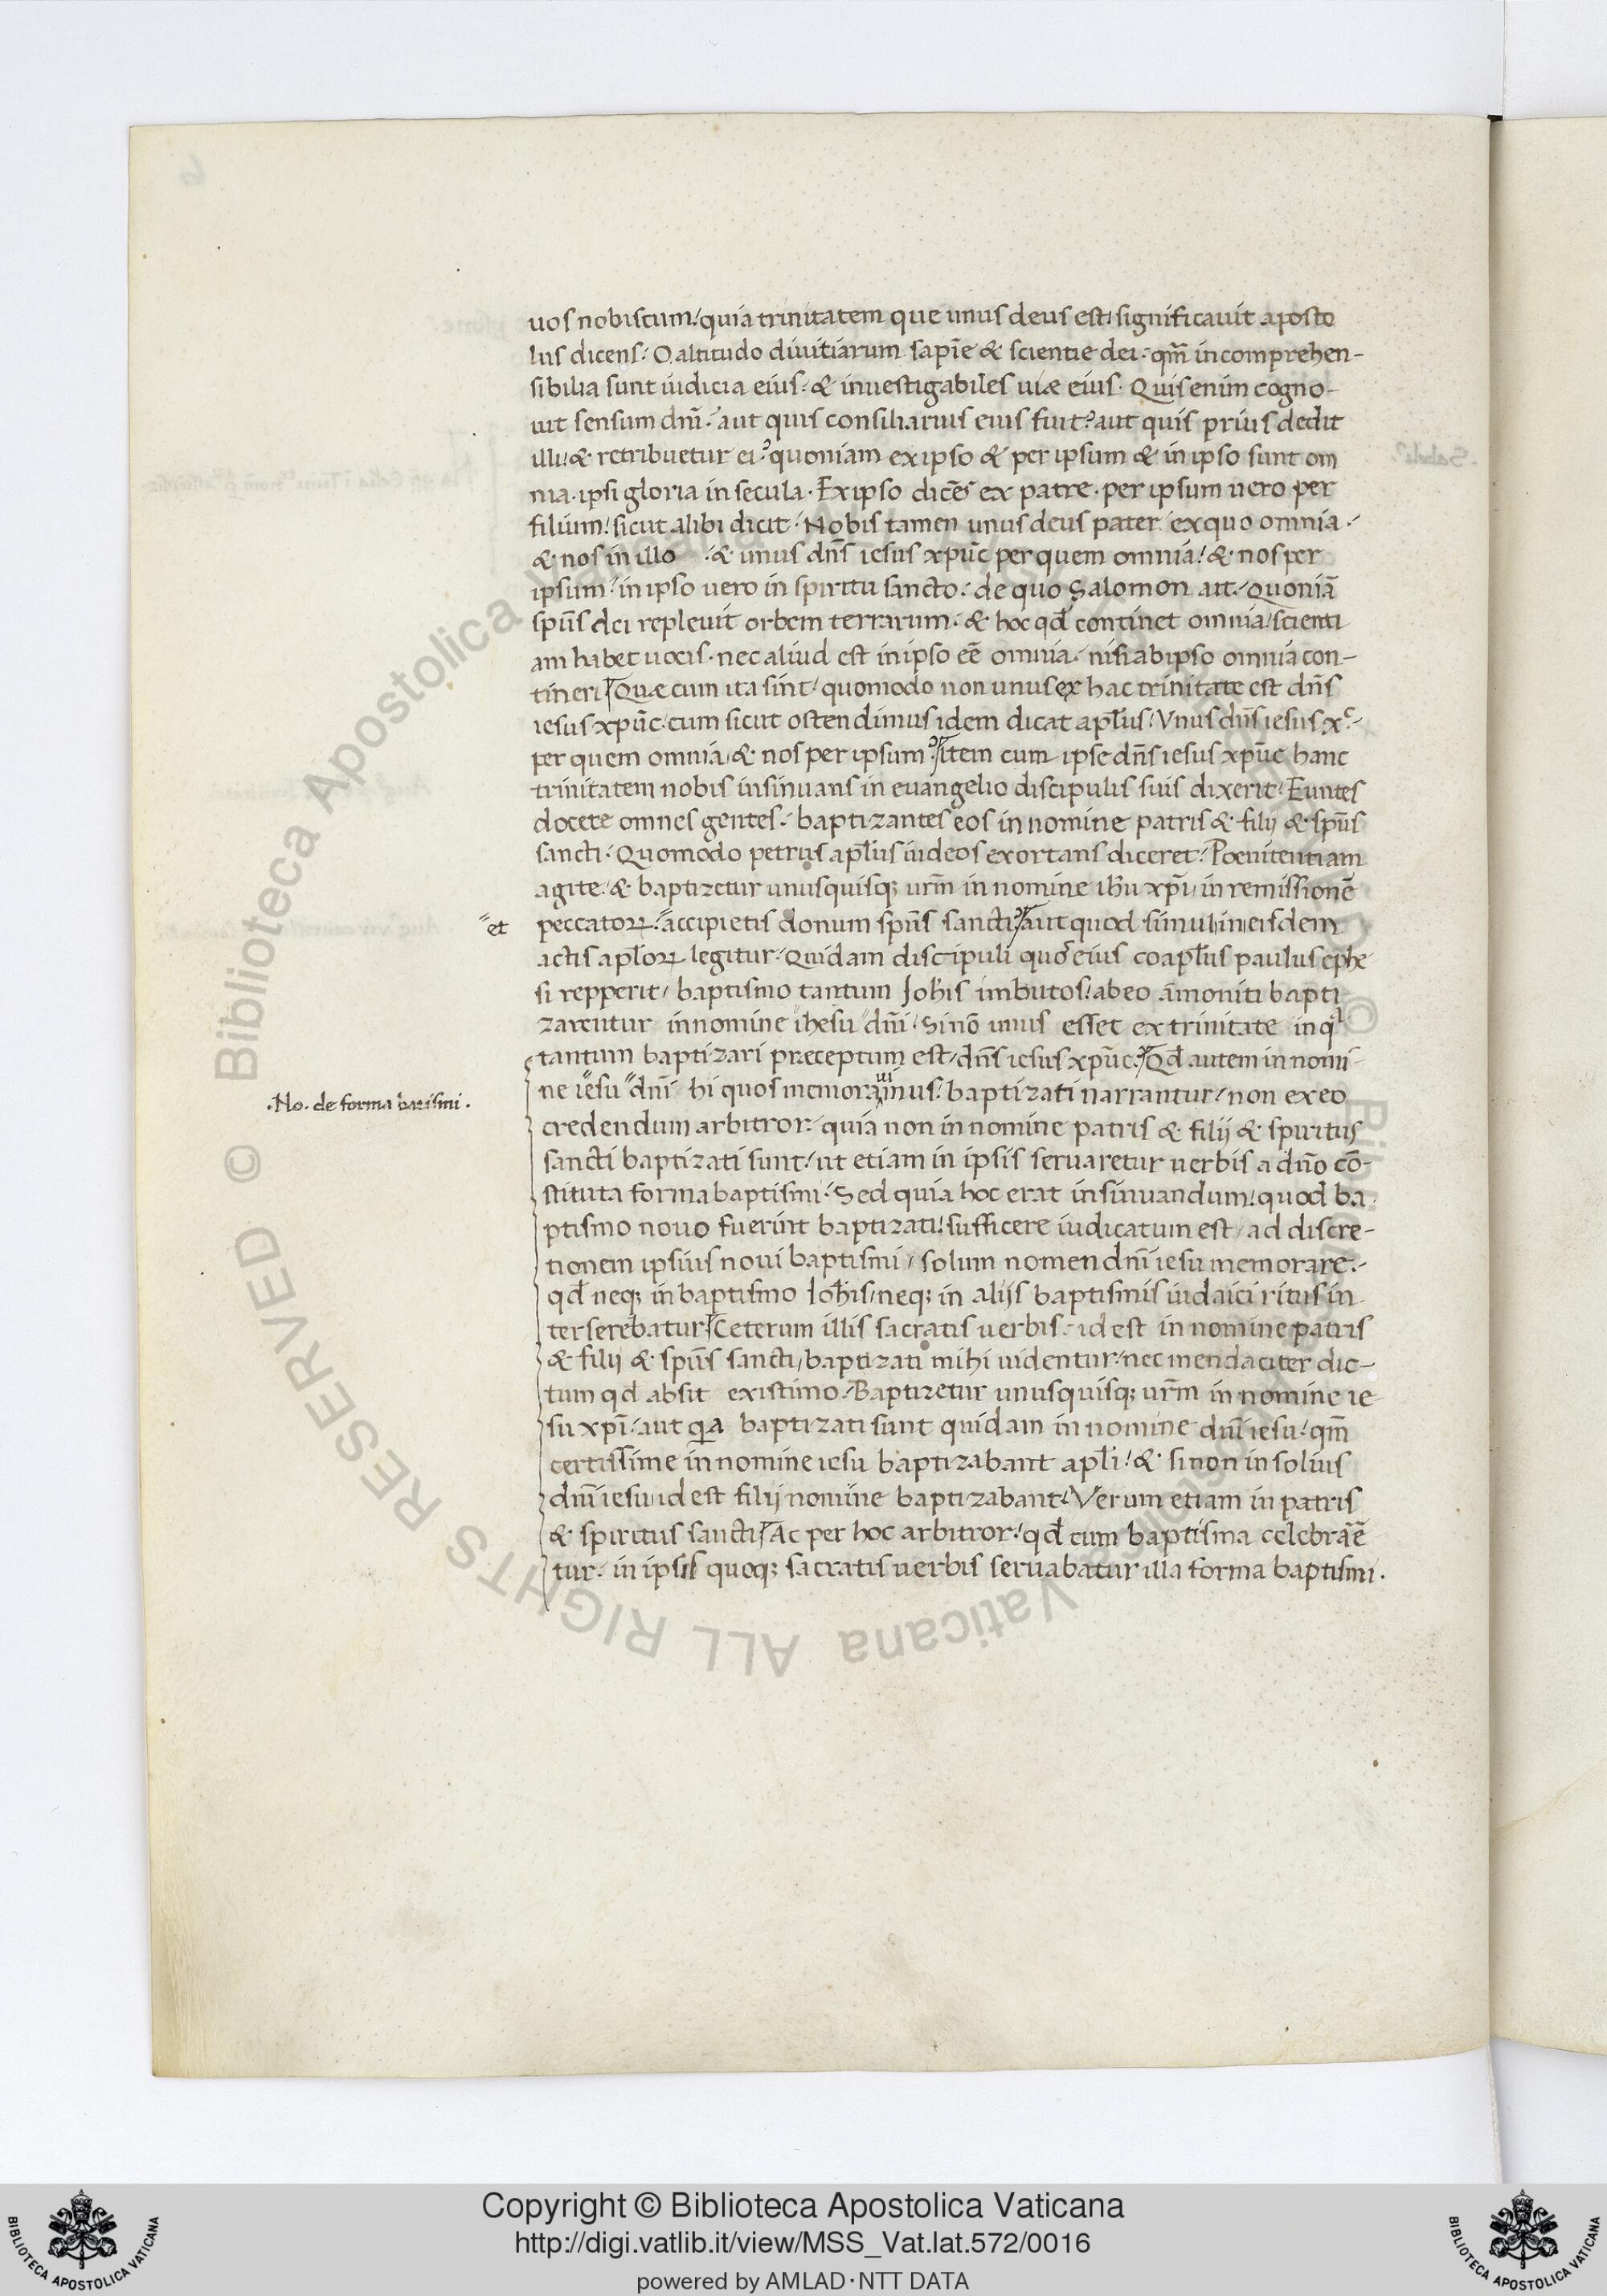 uos nobiscum / quia trinitatem que unus deus est / significauit aposto
lus dicens · O altitudo diuitiarum sapiẽ & scientie dei · qm̃ incomprehen-
sibilia sunt iudicia eius · & inuestigabiles uiæ eius · Quis enim cogno-
uit sensum dñi · aut quis consiliarius eius fuit? aut quis prius dedit
illi / & retribuetur ei? quoniam ex ipso & per ipsum & in ipso sunt om
nia · ipsi gloria in secula · Ex ipso dicẽs ex patre · per ipsum uero per
filium / sicut alibi dicit · Nobis tamen unus deus pater ex quo omnia ·
& nos in illo · & unus dñs iesus xpūc per quem omnia / & nos per
ipsum / in ipso uero in spiritu sancto · de quo Salomon ait · Quoniã
spũs dei repleuit orbem terrarum · & hoc qđ continet omnia / scienti
am habet uocis · nec aliud est in ipso eẽ omnia · nisi ab ipso omnia con-
tineri / Quæ cum ita sint / quomodo non unus ex hac trinitate est dñs
iesus xpūc · cum sicut ostendimus idem dicat apłus / Vnus dñs iesus xc ·
per quem omnia / & nos per ipsum? item cum ipse dñs iesus xpūc hanc
trinitatem nobis insinuans in euangelio discipulis suis dixerit · Euntes
docete omnes gentes · baptizantes eos in nomine patris & filij & spũs
sancti · Quomodo petrus apłus iudeos exortans diceret · Poenitentiam
agite · & baptizetur unusquisq; urm̃ in nomine ihu xpi / in remissionẽ
et
peccatoꝝ · accipietis donum spũs sancti? aut quod simul in eisdem
actis apłoꝝ legitur · Quidam discipuli quos eius coapłus paulus ephe
si repperit / baptismo tantum Johis imbutos / ab eo ãmoniti bapti
zarentur in nomine ihesu dñi · Si nõ unus esset ex trinitate in qͥ
tantum baptizari preceptum est / dñs iesus xpūc? Qđ autem in nomi-
·No· de forma batismi ·
ne iesu dñi hi quos memorauimus / baptizati narrantur / non ex eo
credendum arbitror · quia non in nomine patris & filij & spiritus
sancti baptizati sunt / ut etiam in ipsis seruaretur uerbis a dño cõ-
stituta forma baptismi · Sed quia hoc erat insinuandum / quod ba
ptismo nouo fuerint baptizati / sufficere iudicatum est / ad discre-
tionem ipsius noui baptismi / solum nomen dñi iesu memorare ·
qđ neq; in baptismo Johis / neq; in alijs baptismis iudaici ritus in
terserebatur / Ceterum illis sacratis uerbis · id est in nomine patris
& filij & spũs sancti / baptizati mihi uidentur / nec mendaciter dic-
tum qđ absit existimo · Baptizetur unusquisq; urm̃ in nomine ie-
su xpi · aut qa baptizati sunt quidam in nomine dñi iesu / qm̃
certissime in nomine iesu baptizabant apłi / & si non in solius
dñi iesu id est filij nomine baptizabant / Verum etiam in patris
& spiritus sancti / Ac per hoc arbitror / qđ cum baptisma celebraẽ
tur · in ipsis quoq; sacratis uerbis seruabatur illa forma baptismi ·
© Biblioteca Apostolica Vaticana ALL RIGHTS RESERVED
Copyright © Biblioteca Apostolica Vaticana
http://digi.vatlib.it/view/MSS_Vat.lat.572/0016
powered by AMLAD·NTT DATA
BIBLIOTECA APOSTOLICA VATICANA
BIBLIOTECA APOSTOLICA VATICANA